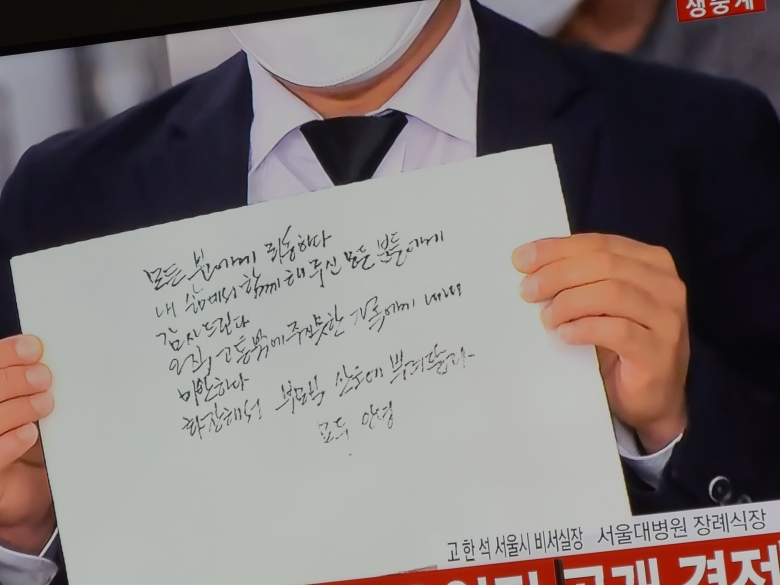 생중계
모든 분에게 죄송하다
내 삶에서 함께 해 주신 모든 분들에게
감사드린다
오직 고통밖에 주지 못한 가족에게 내내
미안하다
화장해서 부모님 산소에 뿌려달라
모두 안녕
고한석 서울시 비서실장 서울대병원 장례식장
공개 결정